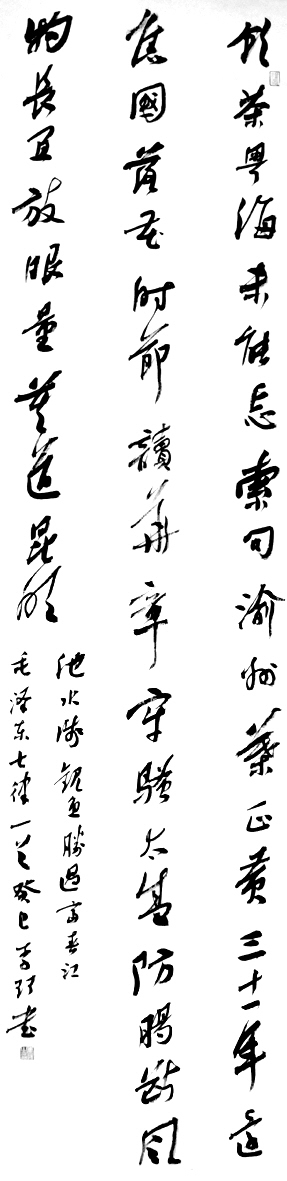 飲茶粤海未能忘索句渝州葉正黄三十一年還
舊國落花時節讀華章牢騷太盛防腸斷風
物長宜放眼量莫道昆明
池水浅觀魚勝過富春江
毛泽东七律一首癸巳李書